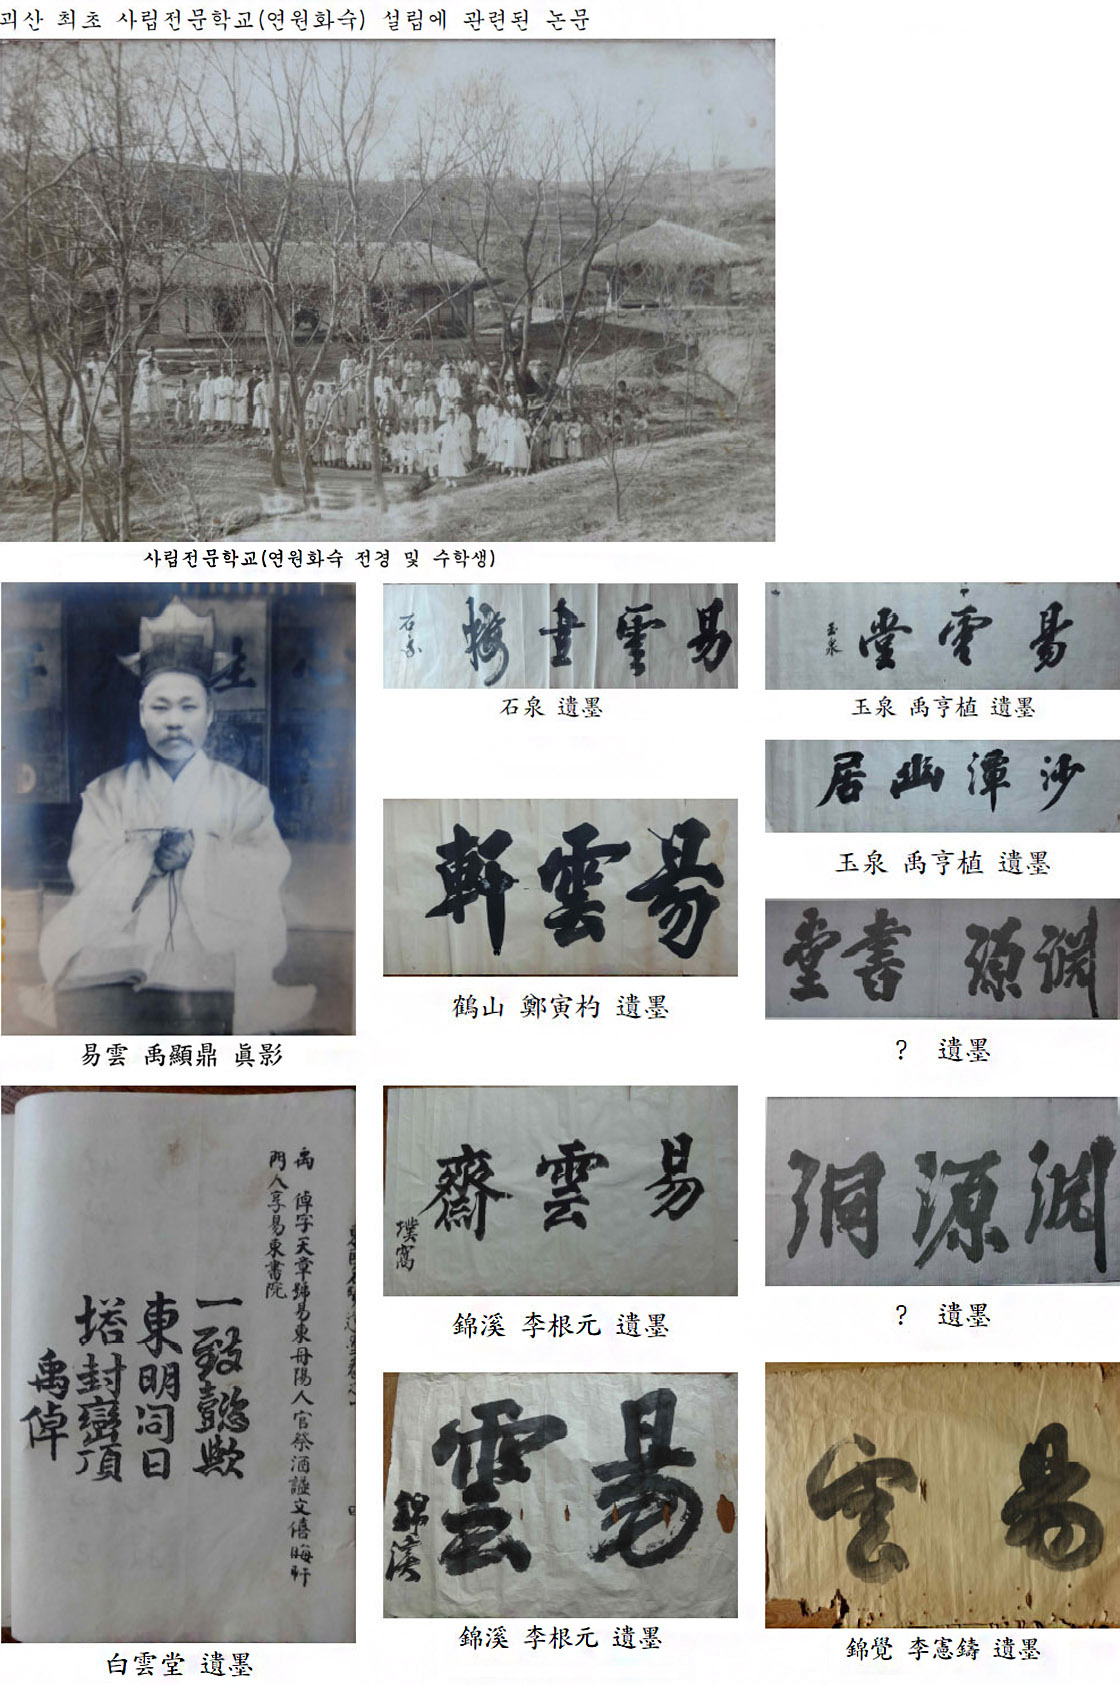 괴산 최초 사립전문학교(연원화숙) 설립에 관련된 논문
사립전문학교(연원화숙 전경 및 수학생)
易雲 禹顯鼎 眞影
石泉
樓 畫 雲 易
石泉 遺墨
玉泉
堂 雲 易
玉泉 禹亨植 遺墨
居 幽 潭 沙
玉泉 禹亨植 遺墨
軒 雲 易
鶴山 鄭寅杓 遺墨
堂 書 源 淵
? 遺墨
禹 倬字天章號易東丹陽人官祭酒諡文僖晦軒
門人享易東書院
一致懿歟
東明同日
塔封巒頂
禹倬
白雲堂 遺墨
齋 雲 易
樸窩
錦溪 李根元 遺墨
洞 源 淵
? 遺墨
雲 易
錦溪
錦溪 李根元 遺墨
雲 易
錦覺 李憲鑄 遺墨